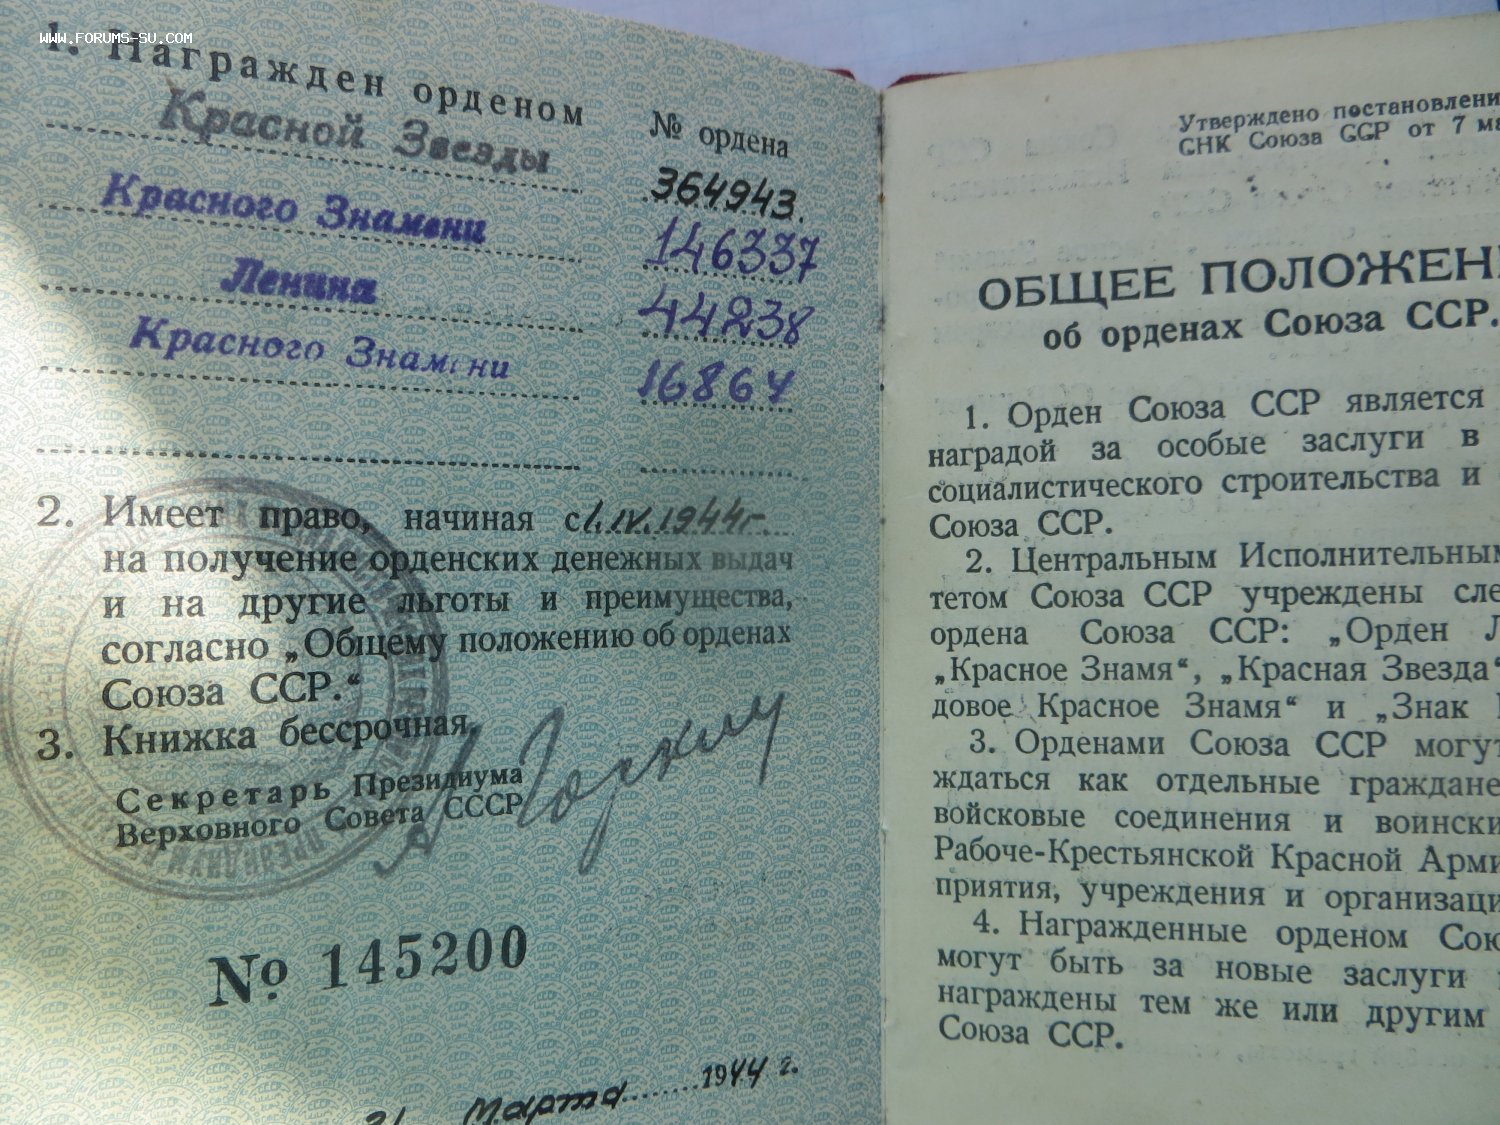 www.forums-su.com
1. Награжден орденом № ордена
Красной Звезды 364943.
Красного Знамени 146337
Ленина 44238
Красного Знамени 16864
2. Имеет право, начиная с 1.IV.1944г.
на получение орденских денежных выдач
и на другие льготы и преимущества,
согласно „Общему положению об орденах
Союза ССР.“
3. Книжка бессрочная.
Секретарь Президиума
Верховного Совета СССР
А Горкин
№ 145200
21 Марта 1944 г.
Утверждено постановлени
СНК Союза ССР от 7 ма
ОБЩЕЕ ПОЛОЖЕН
об орденах Союза ССР.
1. Орден Союза ССР является
наградой за особые заслуги в
социалистического строительства и
Союза ССР.
2. Центральным Исполнительным
тетом Союза ССР учреждены сле
ордена Союза ССР: „Орден Л
„Красное Знамя“, „Красная Звезда“
довое Красное Знамя“ и „Знак
3. Орденами Союза ССР могут
ждаться как отдельные граждане
войсковые соединения и воински
Рабоче-Крестьянской Красной Арми
приятия, учреждения и организаци
4. Награжденные орденом Сою
могут быть за новые заслуги
награждены тем же или другим
Союза ССР.